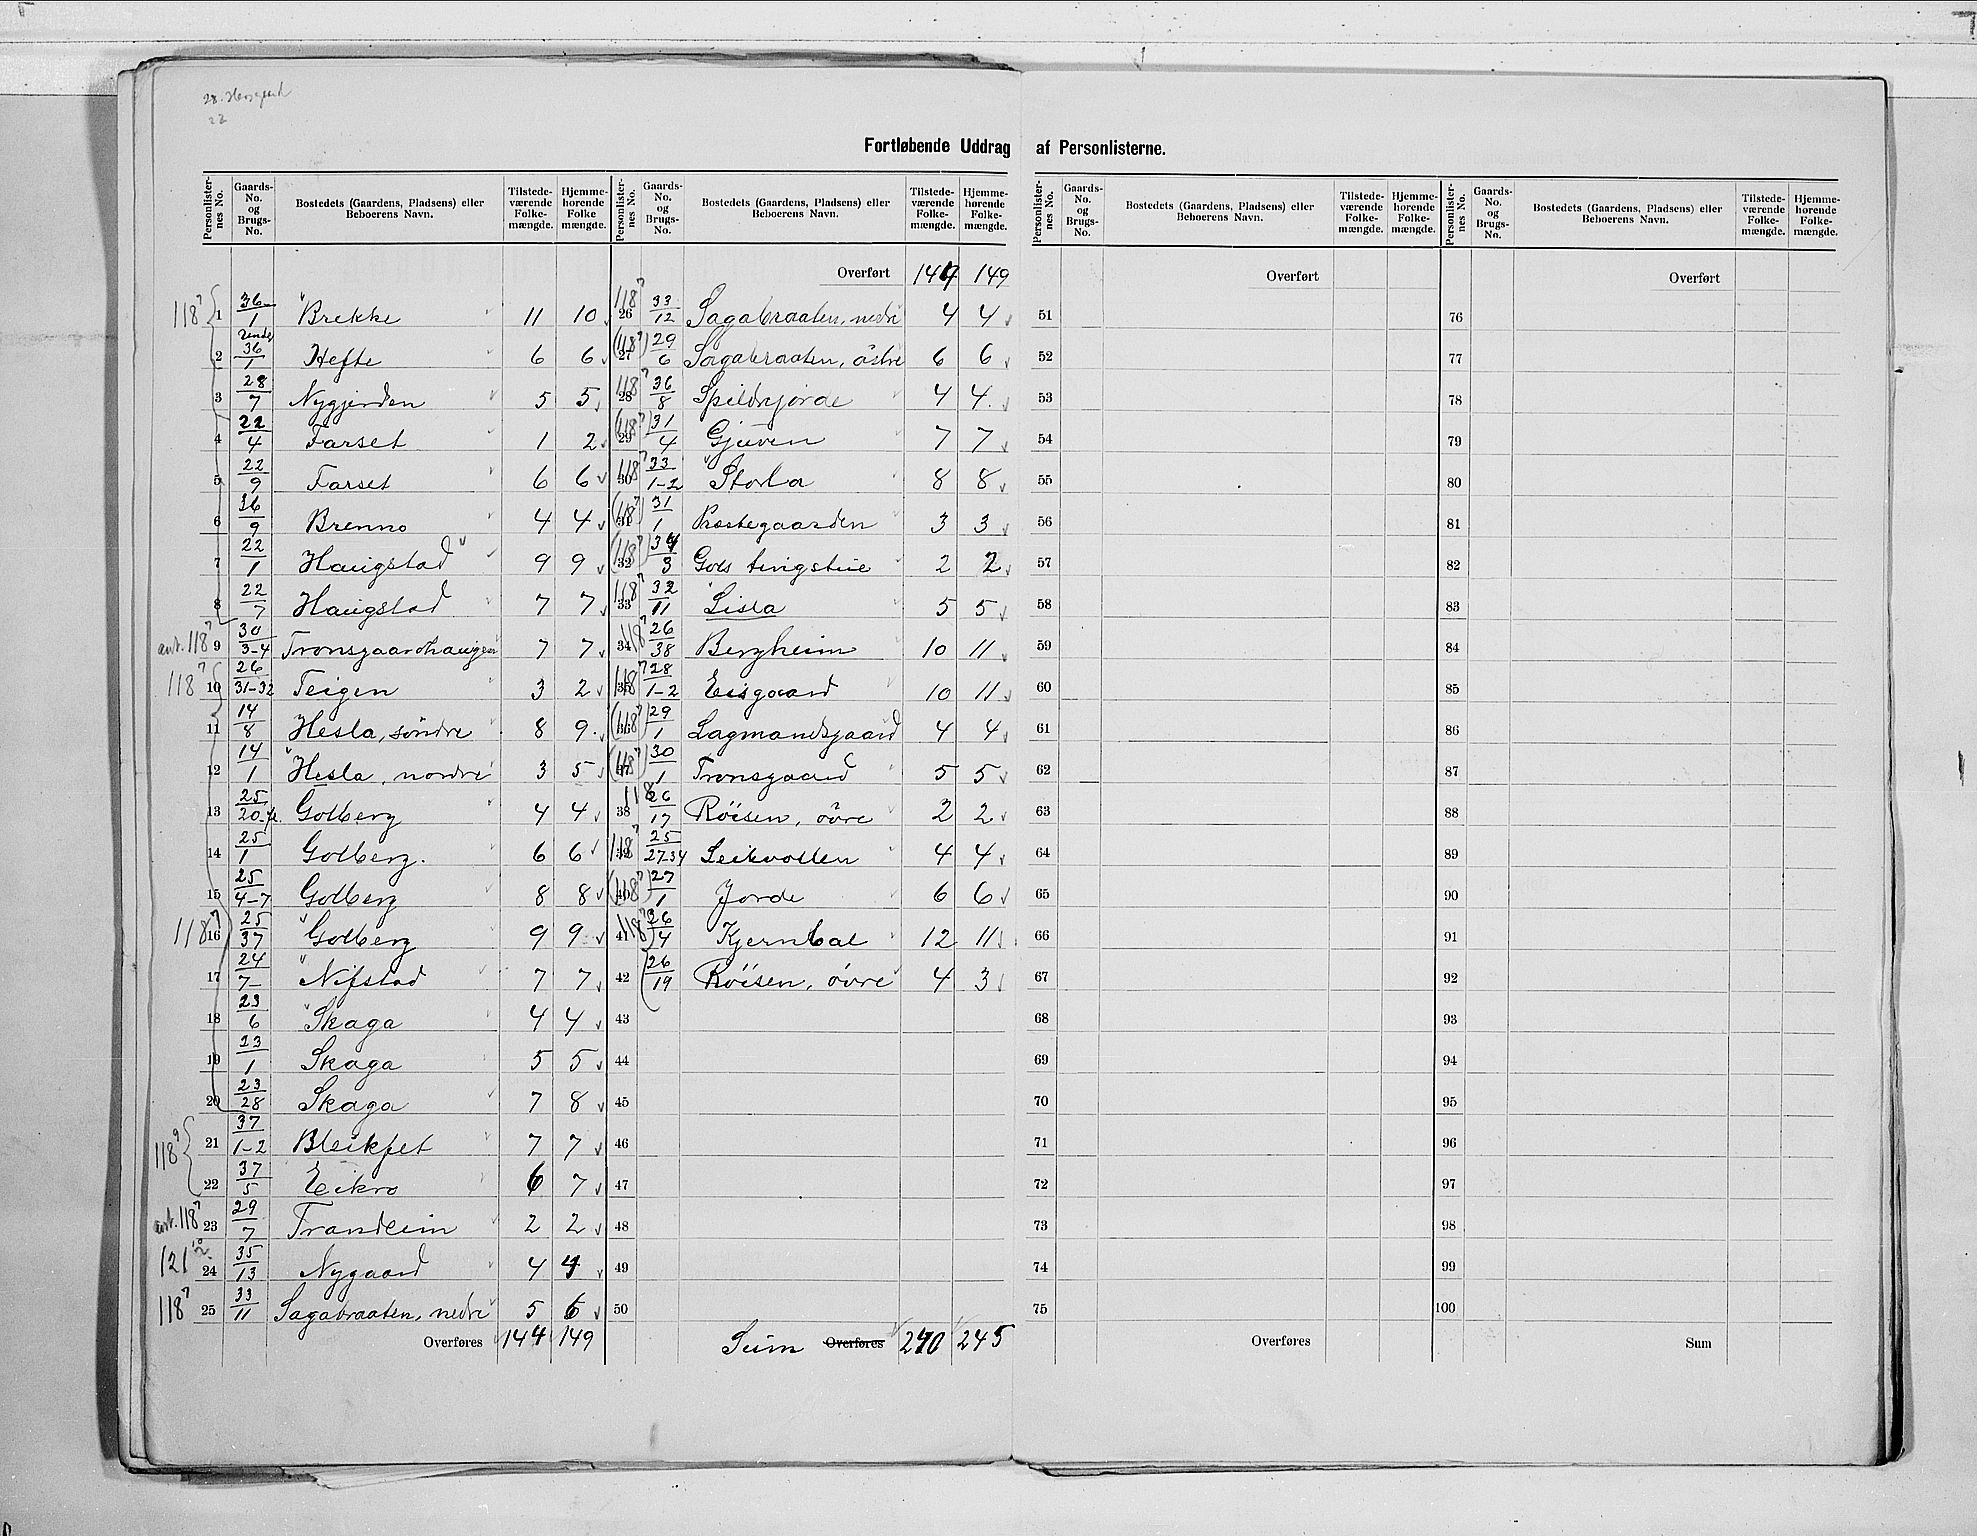 Fortløbende Uddrag af Personlisterne.
Personlister-nes No. Gaards-No. og Brugs-No. Bostedets (Gaardens, Pladsens) eller Beboerens Navn. Tilstede-værende Folke-mængde. Hjemme-hørende Folke mængde.
118⁷ 1 36/1 Brekke 11 10
2 36/1 Hefte 6 6
3 28/7 Nygjerden 5 5
4 22/4 Farset 1 2
5 22/9 Farset 6 6
6 36/9 Brenno 4 4
7 22/1 Haugstad 9 9
8 22/7 Haugstad 7 7
ant. 118⁷ 9 30/3-4 Tronsgaardhaugen 7 7
118⁷ 10 26/31-32 Teigen 3 2
11 14/8 Hesla, söndre 8 9
12 14/1 Hesla, nordre 3 5
13 25/20 Golberg 4 4
14 25/1 Golberg. 6 6
15 25/4-7 Golberg 8 8
118⁷ 16 25/37 Golberg 9 9
17 24/7 Nifstad 7 7
18 23/6 Skaga 4 4
19 23/1 Skaga 5 5
20 23/28 Skaga 7 8
118⁹ 21 37/1-2 Bleikfet 7 7
22 37/5 Eikro 6 7
ant. 118⁷ 23 29/7 Trandeim 2 2
121 24 35/13 Nygaard 4 4
118⁷ 25 33/11 Sagabraaten, nedre 5 6
Overføres 144 149
Personlister-nes No. Gaards-No. og Brugs-No. Bostedets (Gaardens, Pladsens) eller Beboerens Navn. Tilstede-værende Folke-mængde. Hjemme-hørende Folke-mængde.
Overført 144 149
118⁷ 26 33/12 Sagabraaten, nedre 4 4
(118⁷) 27 29/6 Sagabraaten, östre 6 6
118⁷ 28 36/8 Spildrejorde 4 4
(118⁷) 29 31/4 Gjuven 7 7
118⁷ 30 33/1-2 Storla 8 8
(118⁷) 31 31/1 Præstegaarden 3 3
(118⁷) 32 34/3 Gols tingstue 2 2
118⁷ 33 32/11 Lisla 5 5
118⁷ 34 26/38 Bergheim 10 11
118⁷ 35 28/1-2 Eisgaard 10 11
(118⁷) 36 29/1 Lagmandsgaard 4 4
(118⁷) 37 30/1 Tronsgaard 5 5
118 38 26/17 Röisen, övre 2 2
118⁷ 39 25/27-34 Leikvollen 4 4
(118⁷) 40 27/1 Jorde 6 6
118⁷ 41 26/4 Kjernbal 12 11
42 26/19 Röisen, övre 4 3
43
44
45
46
47
48
49
50
Sum Overføres 240 245
Personlister-nes No. Gaards-No. og Brugs-No. Bostedets (Gaardens, Pladsens) eller Beboerens Navn. Tilstede-værende Folke-mængde. Hjemme-hørende Folke-mængde.
Overført
51
52
53
54
55
56
57
58
59
60
61
62
63
64
65
66
67
68
69
70
71
72
73
74
75
Overføres
Personlister-nes No. Gaards-No. og Brugs-No. Bostedets (Gaardens, Pladsens) eller Beboerens Navn. Tilstede-værende Folke-mængde. Hjemme-hørende Folke-mængde.
Overført
76
77
78
79
80
81
82
83
84
85
86
87
88
89
90
91
92
93
94
95
96
97
98
99
100
Sum